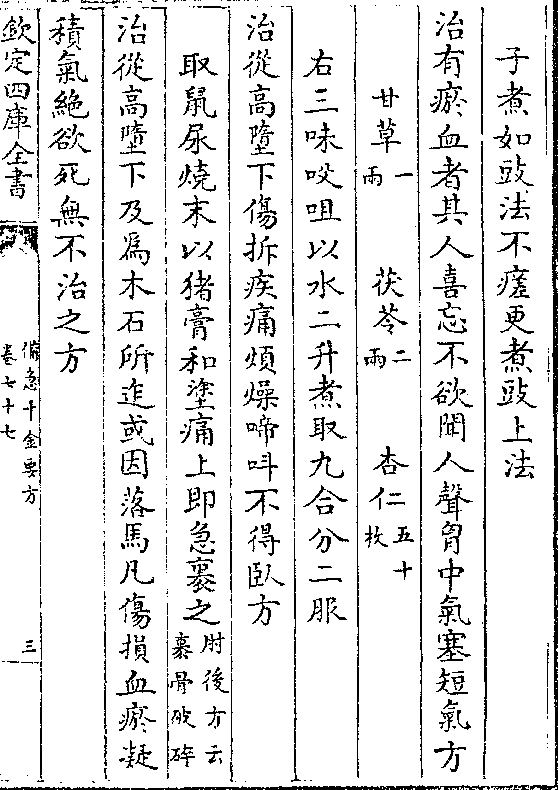 子煮如豉法不瘥更煮豉上法
治有瘀血者其人喜忘不欲聞人聲胷中氣塞短氣方
甘草一兩 茯苓二兩 杏仁五十二枚
右三味㕮咀以水二升煮取九合分二服
治從高墮下傷折疾痛煩燥啼呌不得臥方
取鼠屎燒末以猪膏和塗痛上即急裹之肘後方云裹骨破碎
治從高墮下及為木石所迮或因落馬凡傷損血瘀凝
積氣絶欲死無不治之方
欽定四庫全書
備急千金要方
卷七十七
三